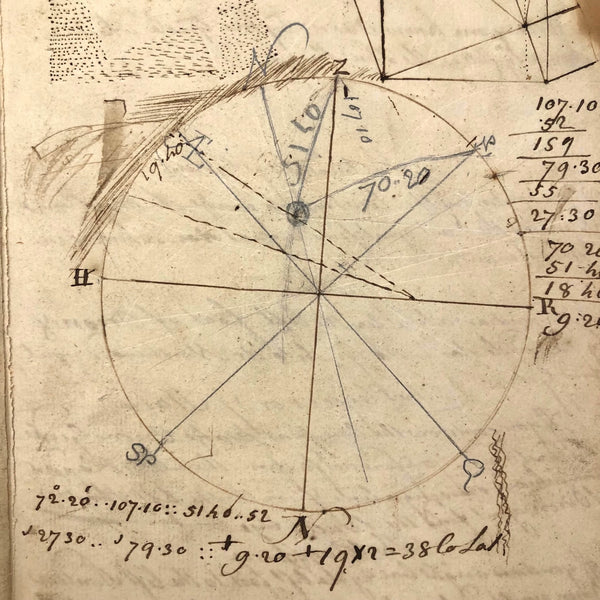 Z
107.10
52
159
79.30
55
27:30
70 20
51 40
18 40
9:2
51 40
107 10
70.20
19.40
Æ
H
R
SP
Q
N
72°.20'..107.10::5140..52
2730..79.30::+9.20+19x2=38 Co Lat